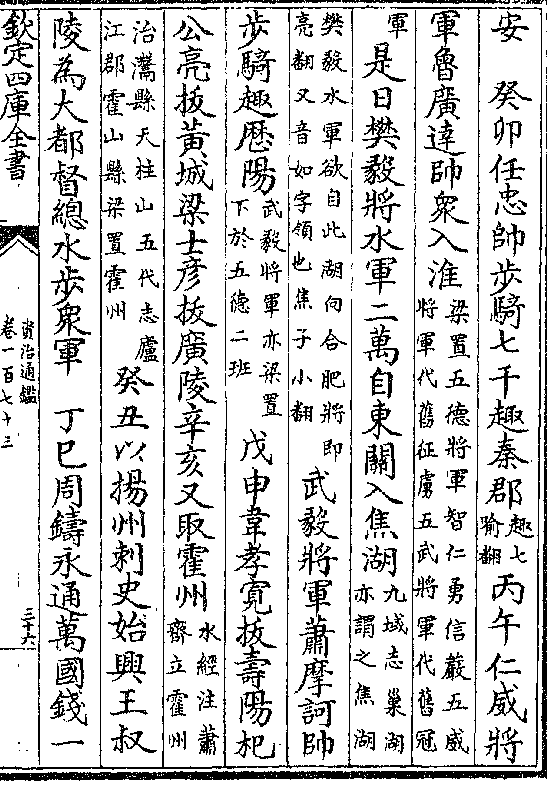 安　癸卯任忠帥步騎七千趣秦郡趣七喻翻丙午仁威將
軍魯廣達帥衆入淮梁置五德將軍智仁勇信嚴五威將軍代舊征虜五武將軍代舊冠
軍　是日樊毅將水軍二萬自東關入焦湖九域志巢湖亦謂之焦湖
樊毅水軍欲自此湖向合肥將即亮翻又音如字領也焦子小翻　武毅將軍蕭摩訶帥
步騎趣歷陽武毅將軍亦梁置下於五德二班　戊申韋孝寬拔壽陽杞
公亮拔黄城梁士彦拔廣陵辛亥又取霍州水經注蕭齊立霍州
治灊縣天柱山五代志廬江郡霍山縣梁置霍州　癸丑以揚州刺史始興王叔
陵為大都督總水步衆軍　丁巳周鑄永通萬國錢一
欽定四庫全書
資治通鑑
卷一百七十三
三十六